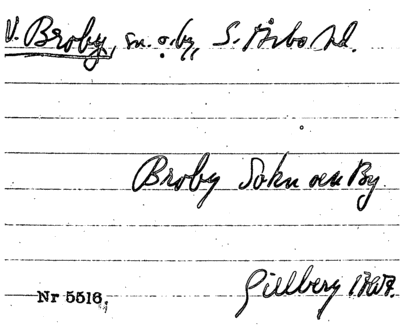 V. Broby, sn. o. by, S. Åsbo hd.
Broby Sokn och By
Gillberg
Nr 5516.